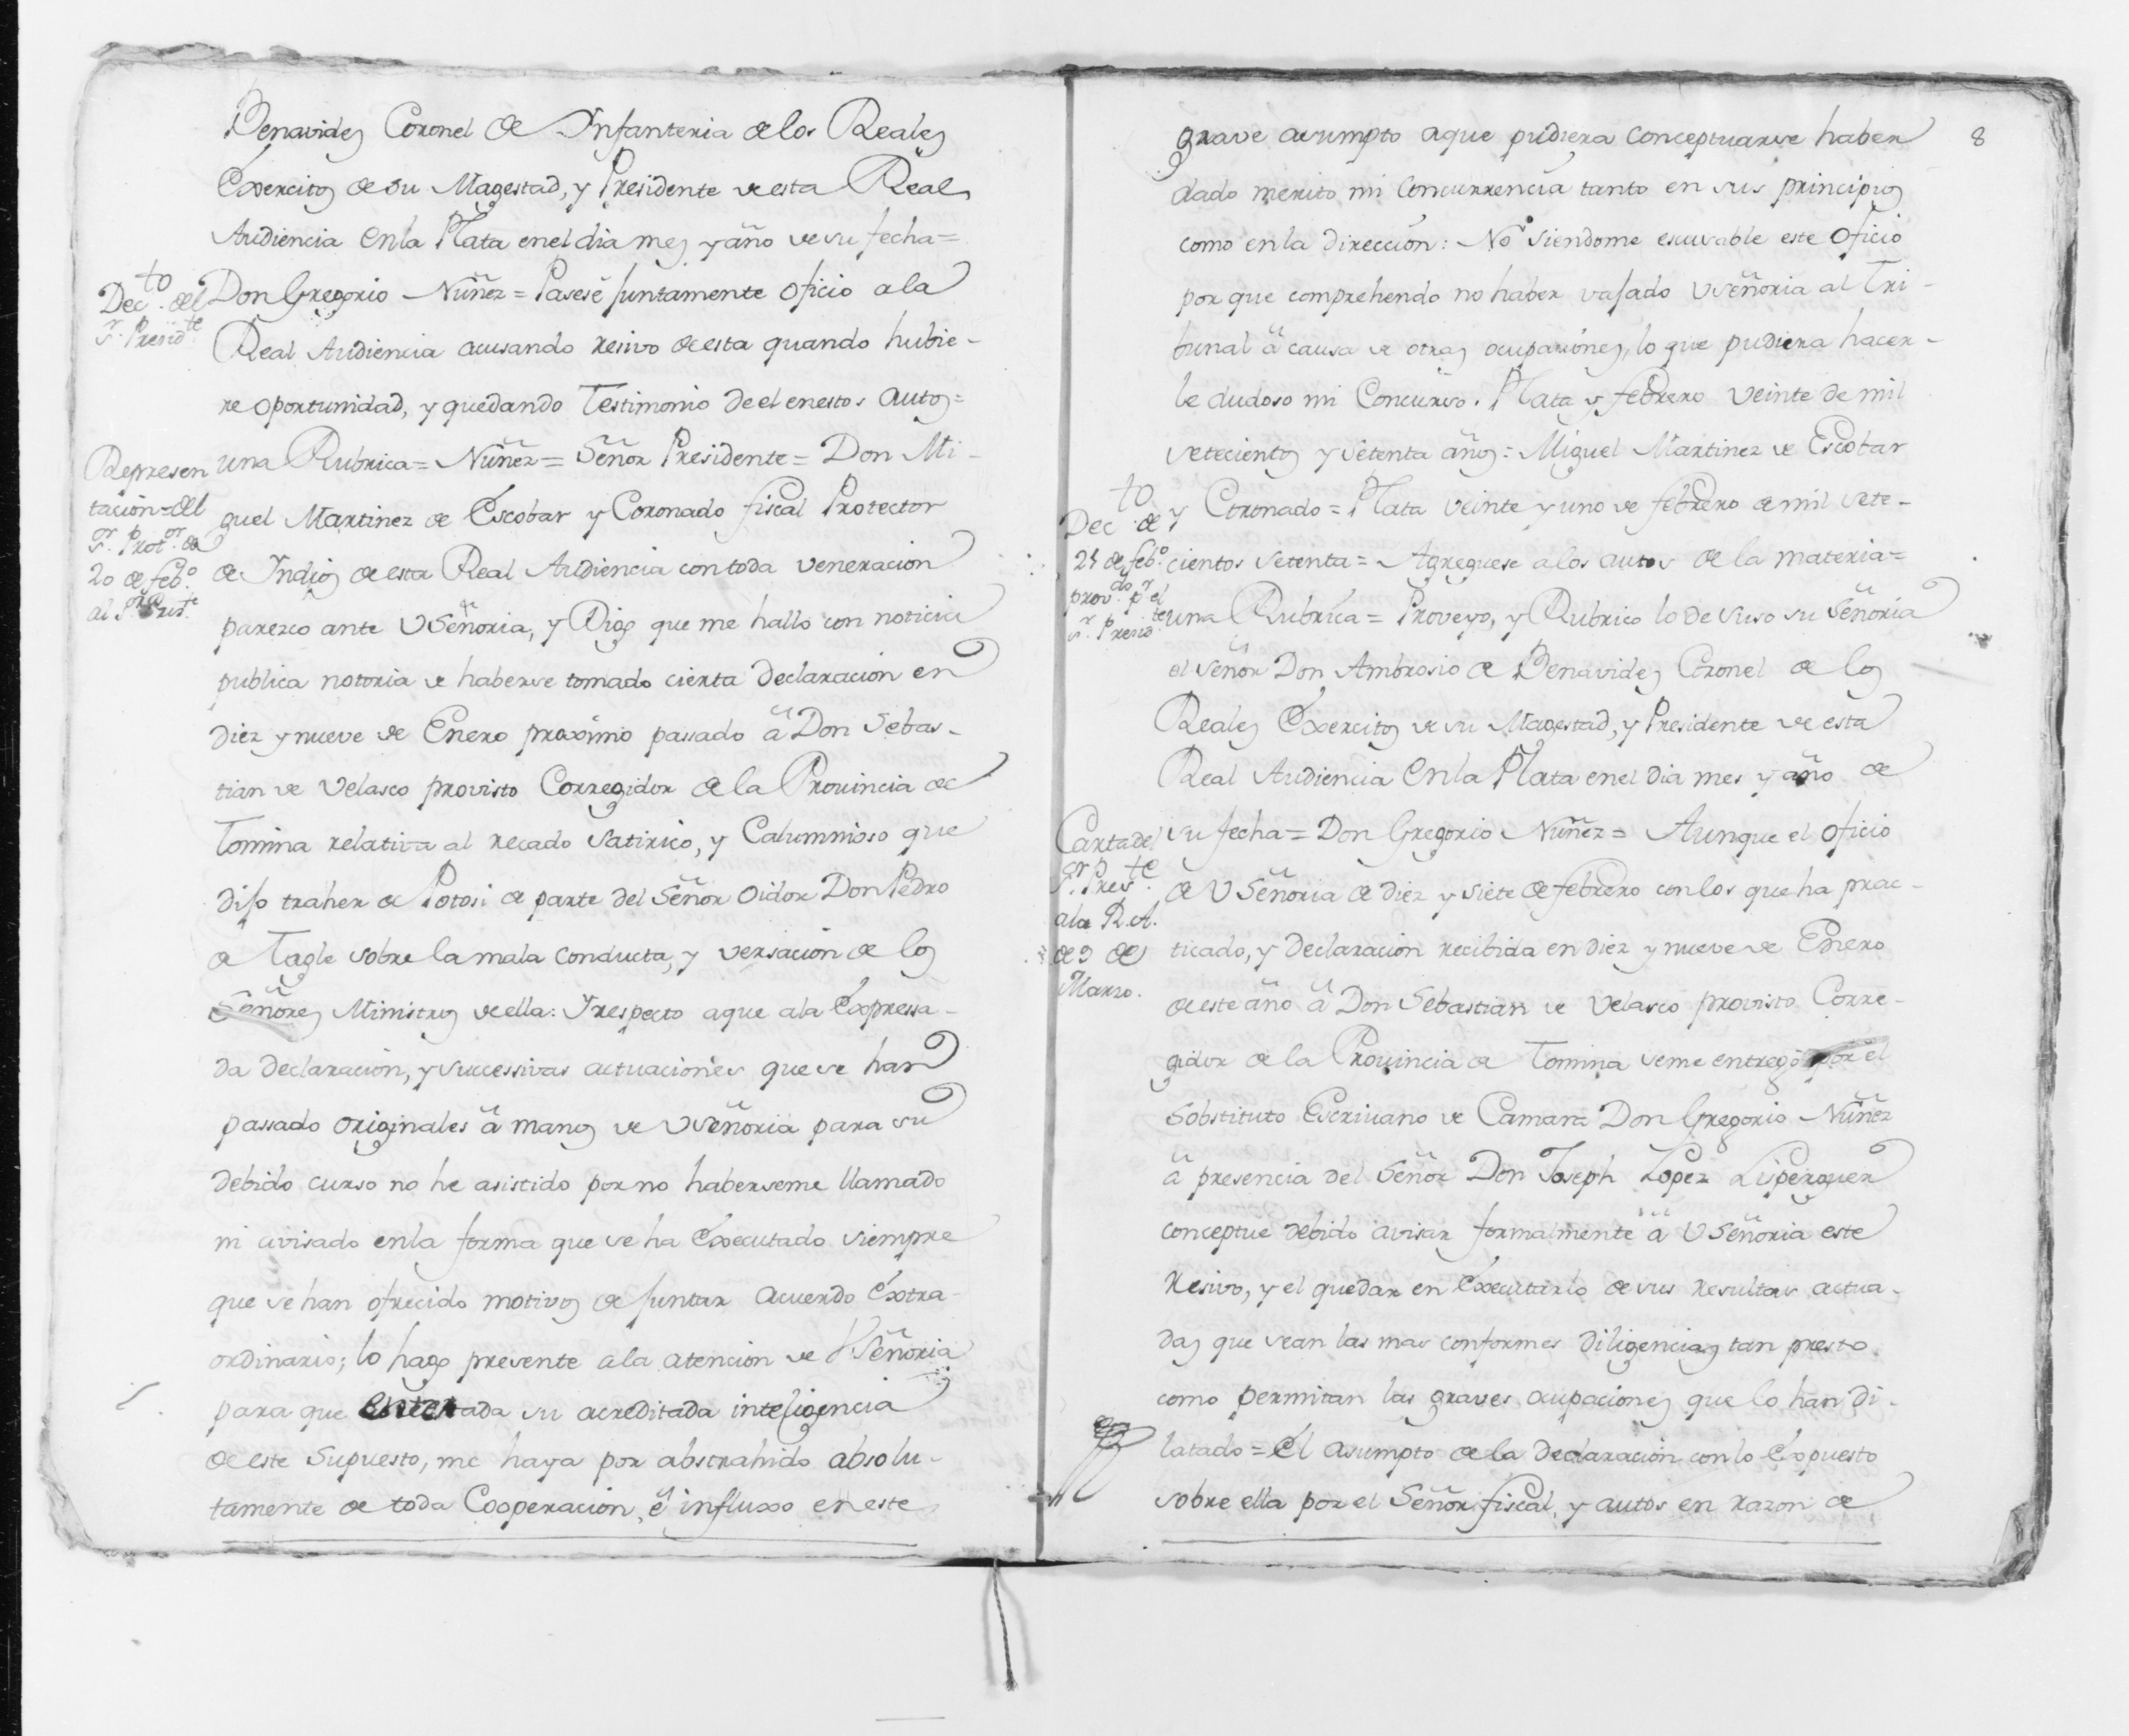 Benavides Coronel de Infanteria delos Reales
Exercitos de su Magestad, y Presidente de esta Real
Audiencia enla Plata enel dia mes y año de su fecha=
Dec.to del
S.r Presid.te
Don Gregorio Nuñez = Pasese juntamente oficio ala
Real Audiencia acusando resivo de esta quando hubie-
re oportunidad, y quedando Testimonio de el enestos autos=
Represen
tacion del
S.or Prot.or de
20 de feb.o
al S.or Pres.te
una Rubrica = Nuñez = Señor Presidente = Don Mi-
guel Martinez de Escobar y Coronado fiscal Protector
de Indios de esta Real Audiencia con toda veneracion
parezco ante VSeñoria, y Digo que me hallo con noticia
publica notoria de haberse tomado cierta declaracion en
diez y nueve de Enero proximo passado â Don Sebas-
tian de Velasco provisto Corregidor de la Provincia de
Tomina relativa al recado satirico, y Calumnioso que
dijo traher de Potosi de parte del Señor Oidor Don Pedro
de Tagle sobre la mala conducta, y versacion de los
Señores Ministros de ella: Y respecto aque ala Expressa-
da declaracion, y successivas actuaciones que se han
passado originales â manos de VSeñoria para su
debido curso no he asistido por no haberseme llamado
ni avisado enla forma que se ha Executado siempre
que se han ofrecido motivos de juntar acuerdo Extra-
ordinario; lo hago presente ala atencion de VSeñoria
para que enterada su acreditada inteligencia
de este supuesto, me haya por abstrahido absolu-
tamente de toda Cooperacion, ê influxo en este
8
grave asumpto aque pudiera conceptuarse haber
dado merito mi concurrencia tanto en sus principios
como en la direccion: No siendome escusable este oficio
por que comprehendo no haber vajado VSeñoria al Tri-
bunal â causa de otras ocupaciones, lo que pudiera hacer-
le dudoso mi Concurso. Plata y febrero veinte de mil
setecientos y setenta años = Miguel Martinez de Escobar
Dec.to de
21 de feb.o
prov.do p.r el
S.r Presid.te
y Coronado = Plata veinte y uno de febrero de mil sete-
cientos setenta = Agreguese alos autos de la materia=
una Rubrica = Proveyo, y Rubrico lo de suso su Señoria
el señor Don Ambrosio de Benavides Coronel de los
Reales Exercitos de su Magestad, y Presidente de esta
Real Audiencia enla Plata enel dia mes y año de
Carta del
S.or Pres.te
ala R.A.
de 9 de
Marzo.
su fecha = Don Gregorio Nuñez = Aunque el oficio
de VSeñoria de diez y siete de febrero con los que ha prac-
ticado, y declaracion recibida en diez y nueve de Enero
de este año â Don Sebastian de Velasco provisto Corre-
gidor de la Provincia de Tomina se me entregó por el
sobstituto Escrivano de Camara Don Gregorio Nuñez
â presencia del Señor Don Joseph Lopez Lisperguer
conceptue debido avisar formalmente â VSeñoria este
resivo, y el quedar en Executarlo de sus resultas actua-
das que sean las mas conformes diligencias tan presto
como permitan las graves ocupaciones que lo han di-
latado = El asumpto de la declaracion con lo Expuesto
sobre ella por el Señor fiscal, y autos en razon de